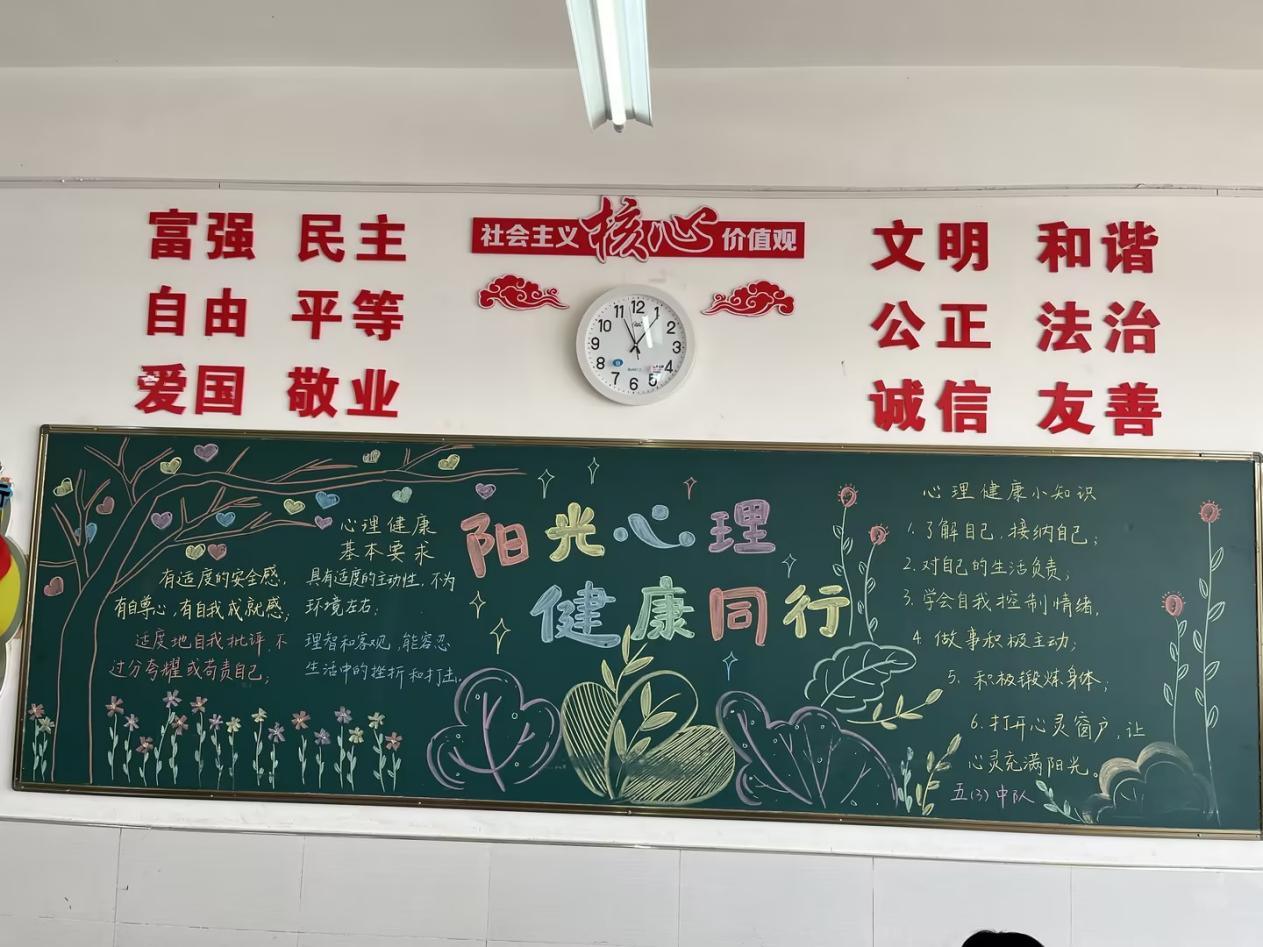 社会主义核心价值观
富强 民主
自由 平等
爱国 敬业
文明 和谐
公正 法治
诚信 友善
12
1
2
3
4
5
6
7
8
9
10
11
阳光心理
健康同行
心理健康
基本要求
有适度的安全感,
有自尊心,有自我成就感;
适度地自我批评,不
过分夸耀或苛责自己;
具有适度的主动性,不为
环境左右;
理智和客观,能容忍
生活中的挫折和打击。
心理健康小知识
1.了解自己,接纳自己;
2.对自己的生活负责;
3.学会自我控制情绪,
4.做事积极主动;
5.积极锻炼身体;
6.打开心灵窗户,让
心灵充满阳光。
五(3)中队